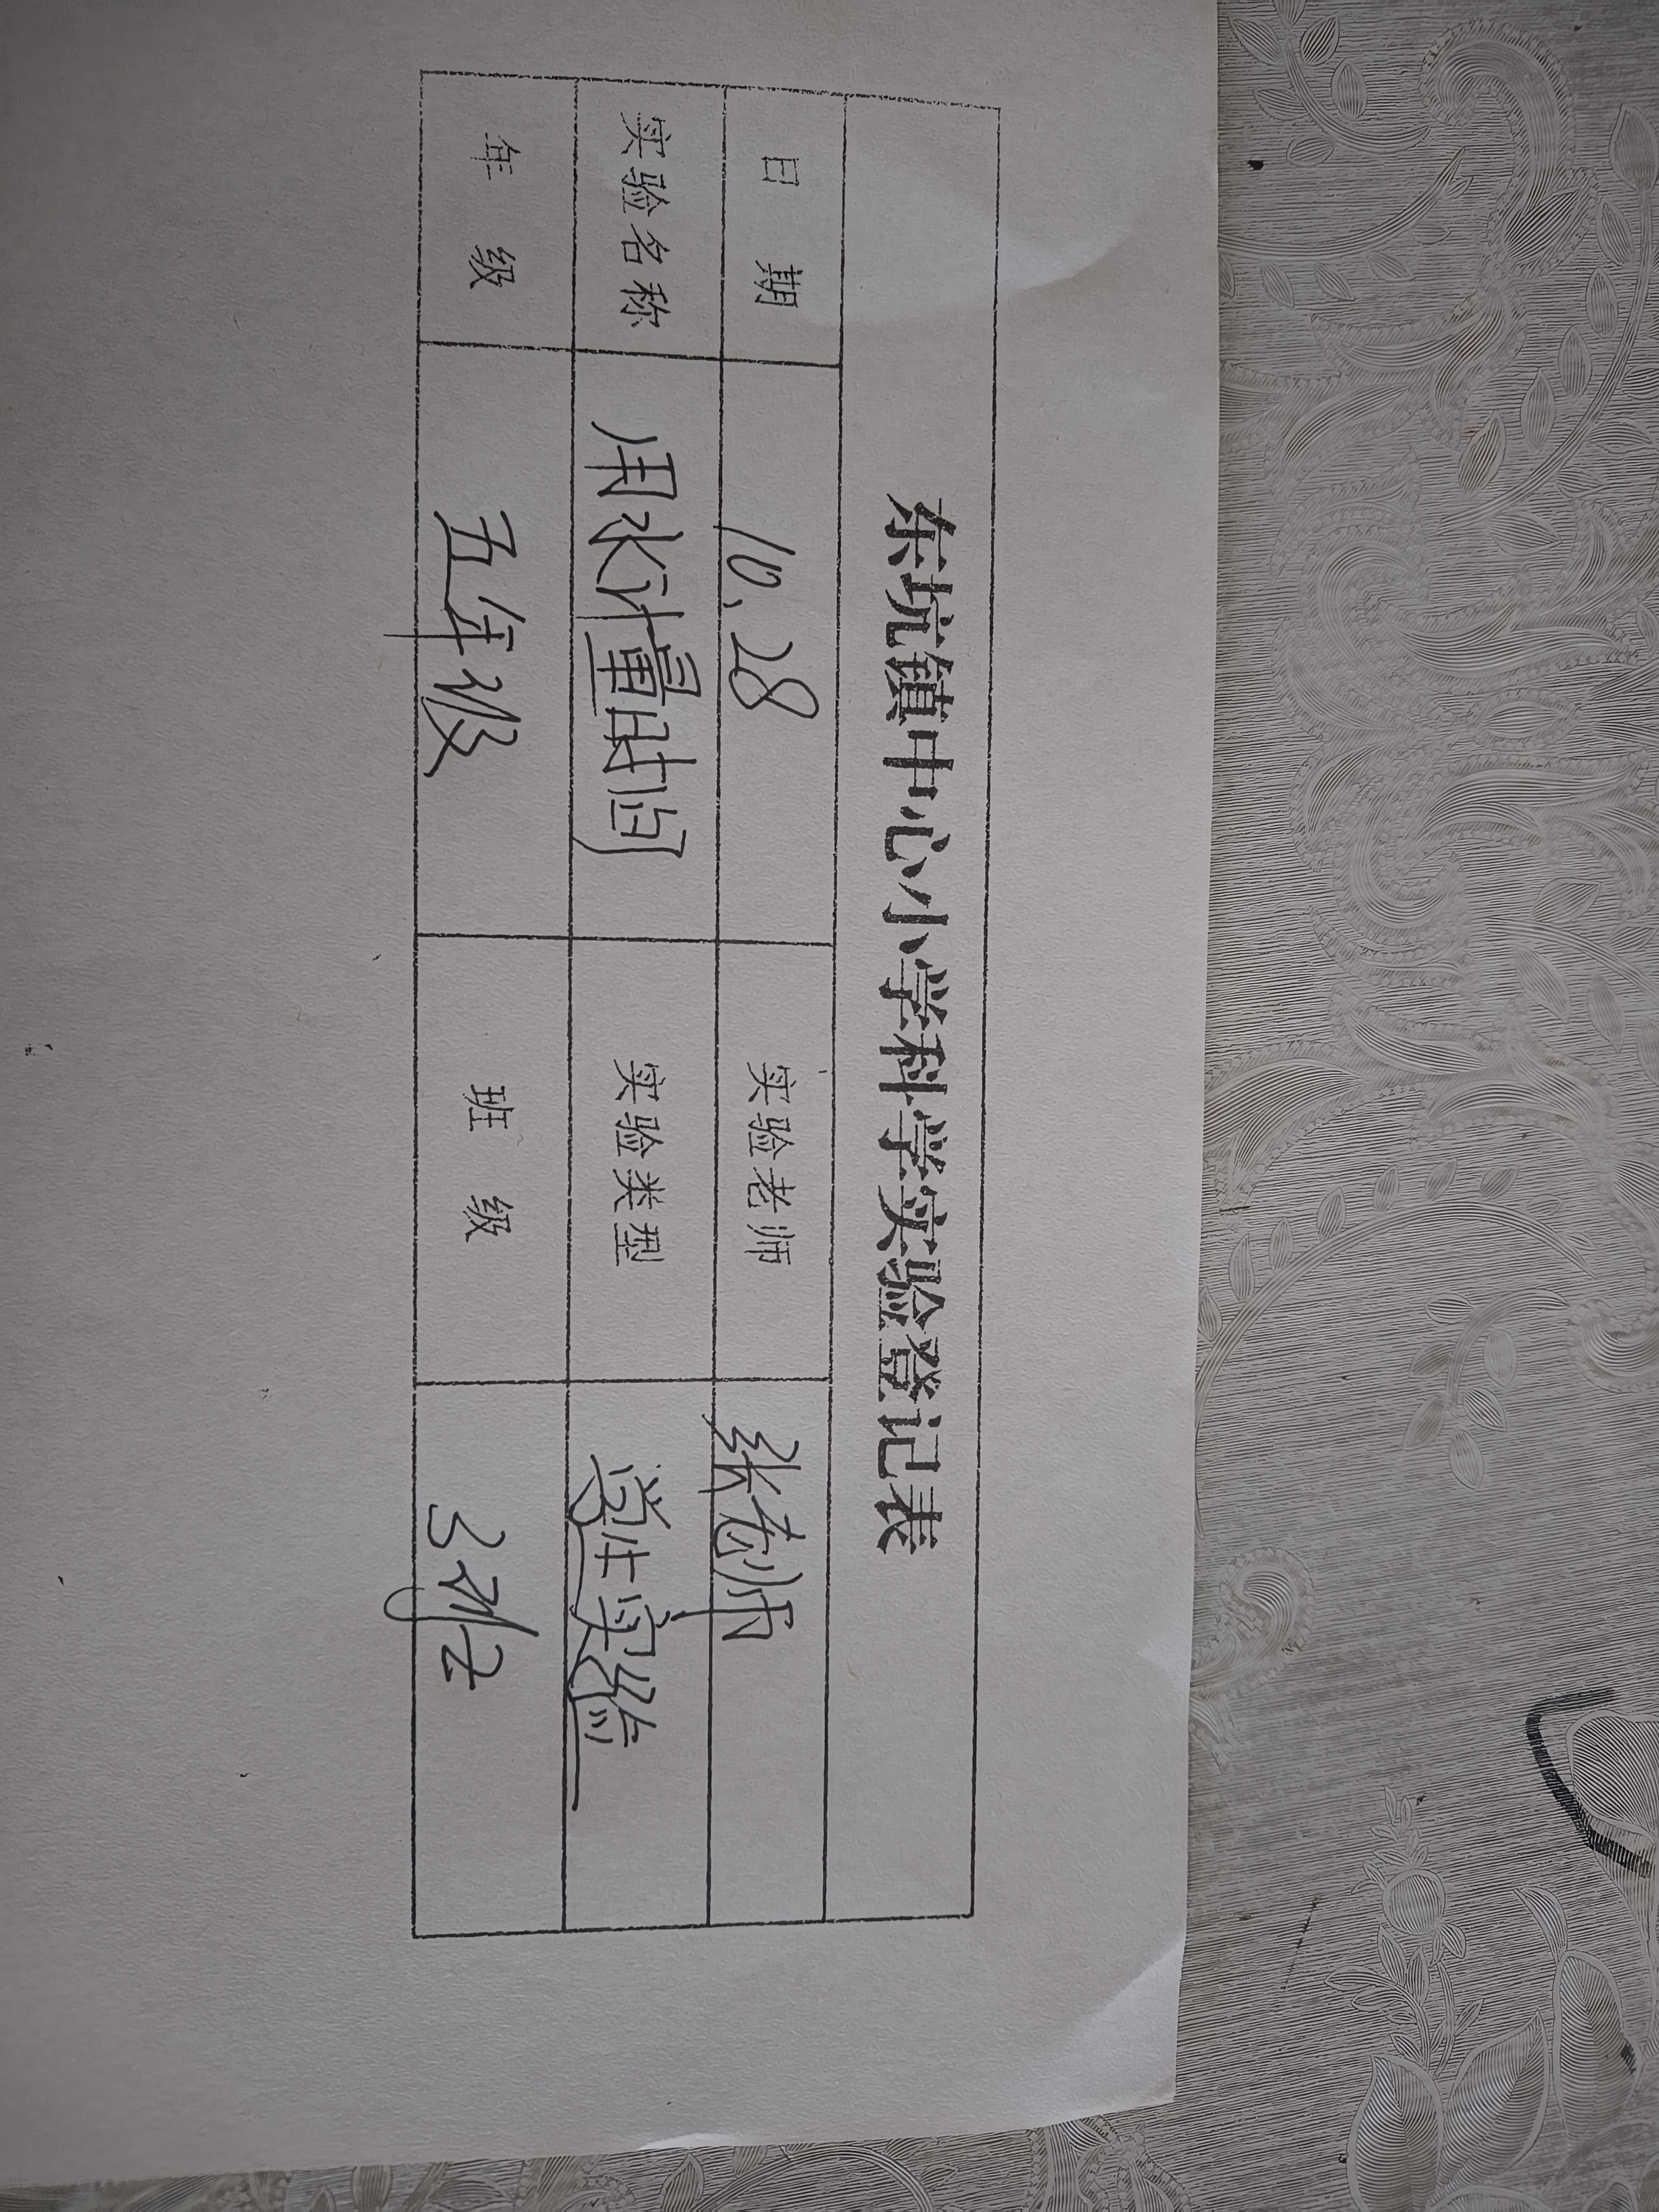 东坑镇中心小学科学实验登记表
日 期 10.28 实验老师 张老师
实验名称 用水计量时间 实验类型 学生实验
年 级 五年级 班 级 3班